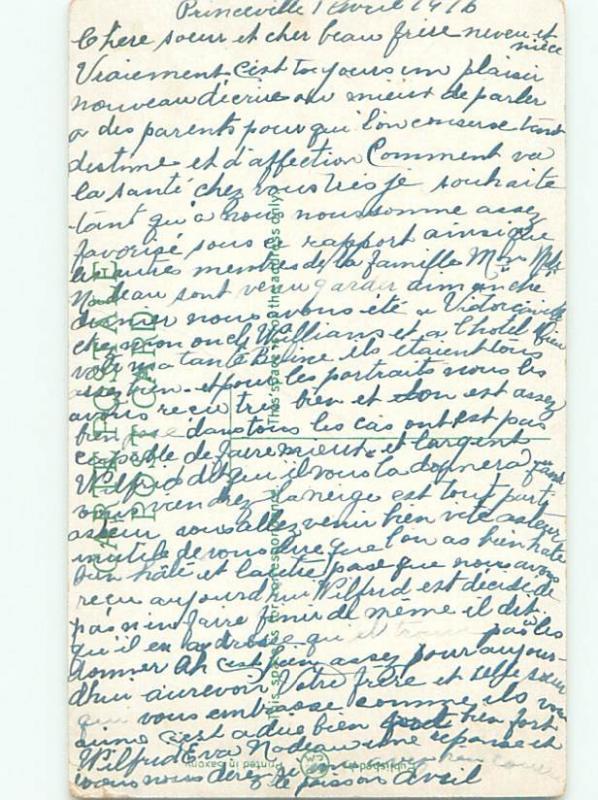 Princeville 1 Avril 1916
Chere soeur et cher beau frère neveu et
niece
Vraiement c'est toujours un plaisir
nouveau d'écrire ou mieux de parler
a des parents pour qui l'on conserve tant
destime et d'affection Comment va
la santé chez vous tres je souhaite
tant qu'a nous nous somme assez
favorisé sous ce rapport ainsi que
les autres membres de la famille Mr Mde
Nadeau sont venu garder dimanche
dernier nous avons été a Victoriaville
chez mon oncle Willians et a l'hotel
voir ma tante ils étaient tous
assez bien et pour les portraits nous les
avons recu tres bien et son est assez
bien posé dans tous les cas ont est pas
capable de faire mieux et l'argent
Wilfrid dit qu'il vous la donnera quand
vous viendrez la neige est tout parti
asteur vous allez venir bien vite asteur
inutile de vous dire que l'on as bien hate
bien hâté et la que nous avons
recu aujourd hui Wilfrid est décidé de
pas n'en faire finir de même il dit
qu'il en a drosse qui pas à les
donner Ah c'est bien assez pour aujour-
d'hui aurevoir Votre frère et belle soeur
qui vous embrasse comme ils vous
aime c'est a dire bien bien fort
Wilfrid Eva Nadeau une reponse et
vous nous direz si
le poisson Avril
CARTE POSTALE
POST CARD
This space is for the address only
This space is for correspondence
Printed in Saxony
Publisher